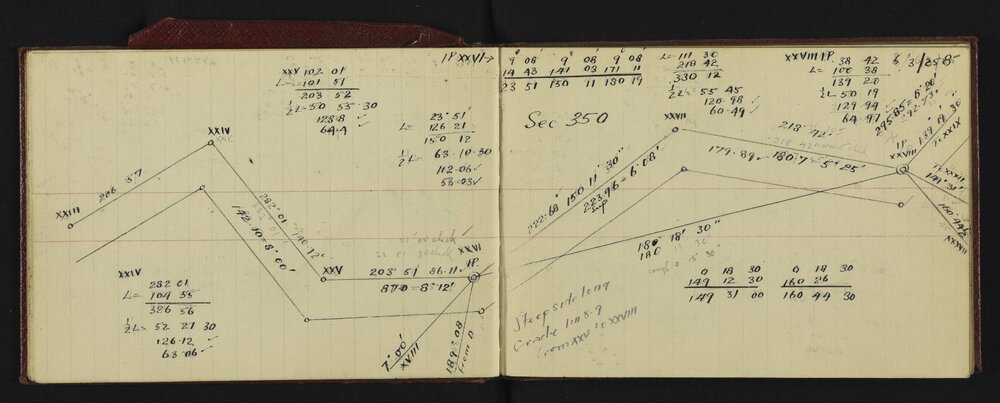 XXV 102 01
L= 101 51
203 52
½L= 50 55 30
128.8 ✓
64.4 ✓
1P XXVI→
XXIV
23° 51'
L= 126 21
150 12
½L= 63.10.30
112.06 ✓
53.03 ✓
206 57
XXIII
282.01
142.10=8° 00'
XXIV
282 01
L= 104 55
386 56
½L= 52 27 30
126.12 ✓
63.06 ✓
XXV
203° 51 86.11 ✓
870=8°12'
XXVI
1P.
7° 00'
XVIII
189° 08
From D
9 08 9 08 9 08
14 43 141 03 171 11
23 51 150 11 180 19
L= 111 30
218 42
330 12
½L= 55 45
120.98 ✓
60.49 ✓
XXVIII 1P.
L= 38 42
100 38
139 20
½L= 50 19
129.94 ✓
64.97 ✓
Sec 350
XXVII
218° 42'
179.89 180.7=5° 25'
222.68 150 11' 30"
223.96=6° 08'
Sup
295.85=8° 20'
1P.
XXVIII
189 19 30
To XXIX
To XXXII
149° 31'
160° 44½
XXXII
180° 18' 30"
180
0 18 30 0 18 30
149 12 30 160 26
149 31 00 160 44 30
Steep sidelong
Grade 1 in 8.9
from XXV to XXVIII